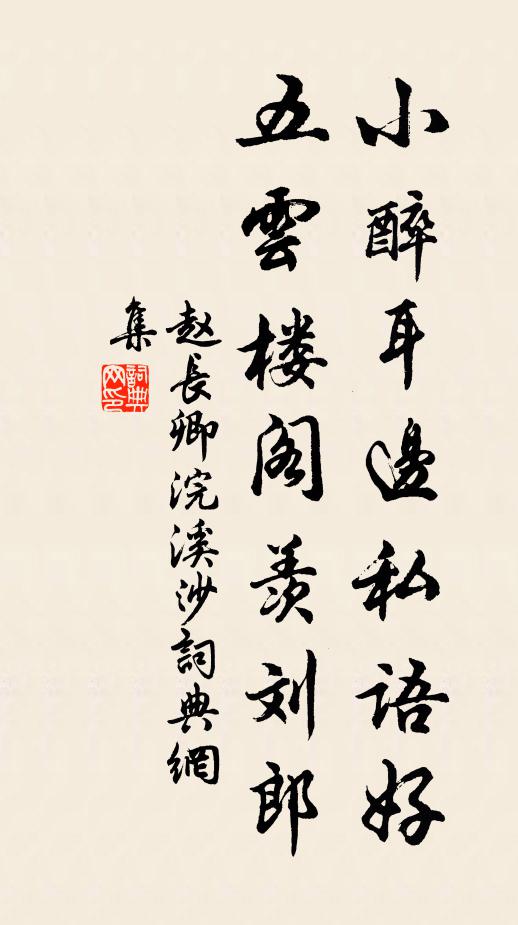 小醉耳邊私语好
五雲楼阁羡刘郎
赵長卿浣溪沙詞典網
集
詞典网印